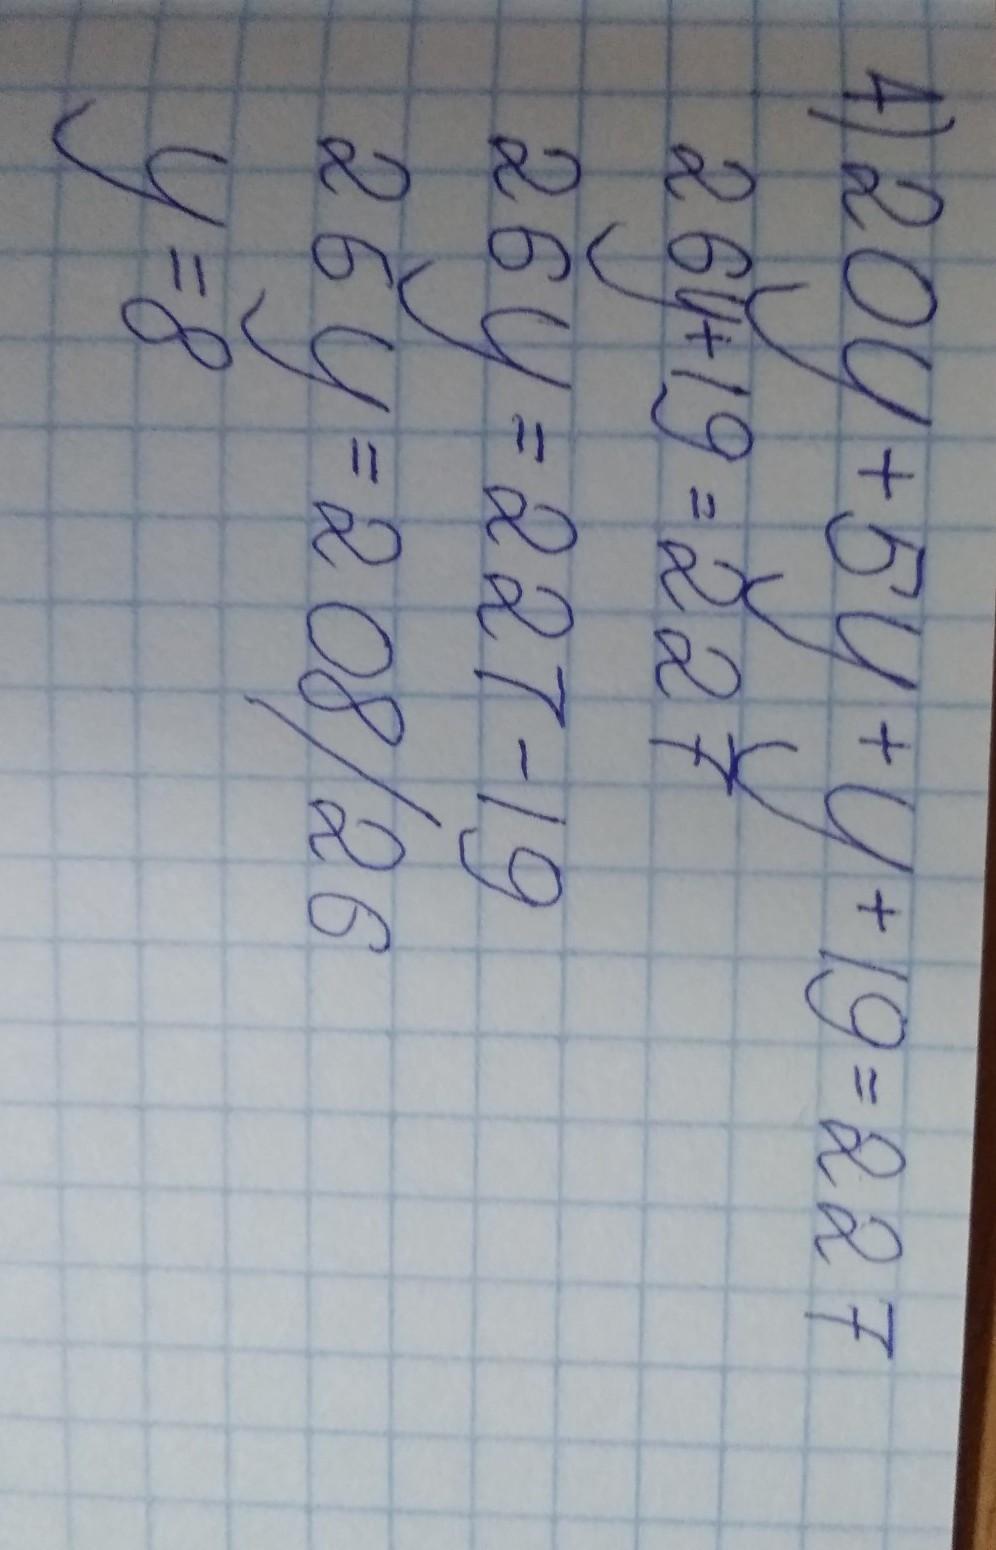 1) 20y + 5y + y + 19 = 227
26y + 19 = 227
26y = 227 - 19
26y = 208/26
y = 8